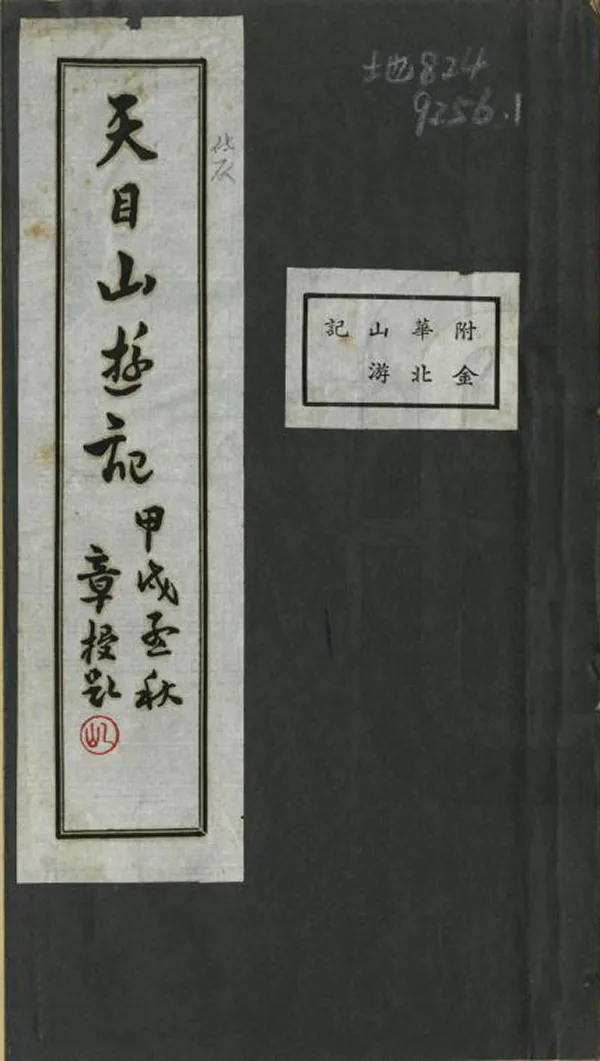 地824
9256.1
附金
華北
山游
記
天目山遊記
甲戌孟秋
章授題